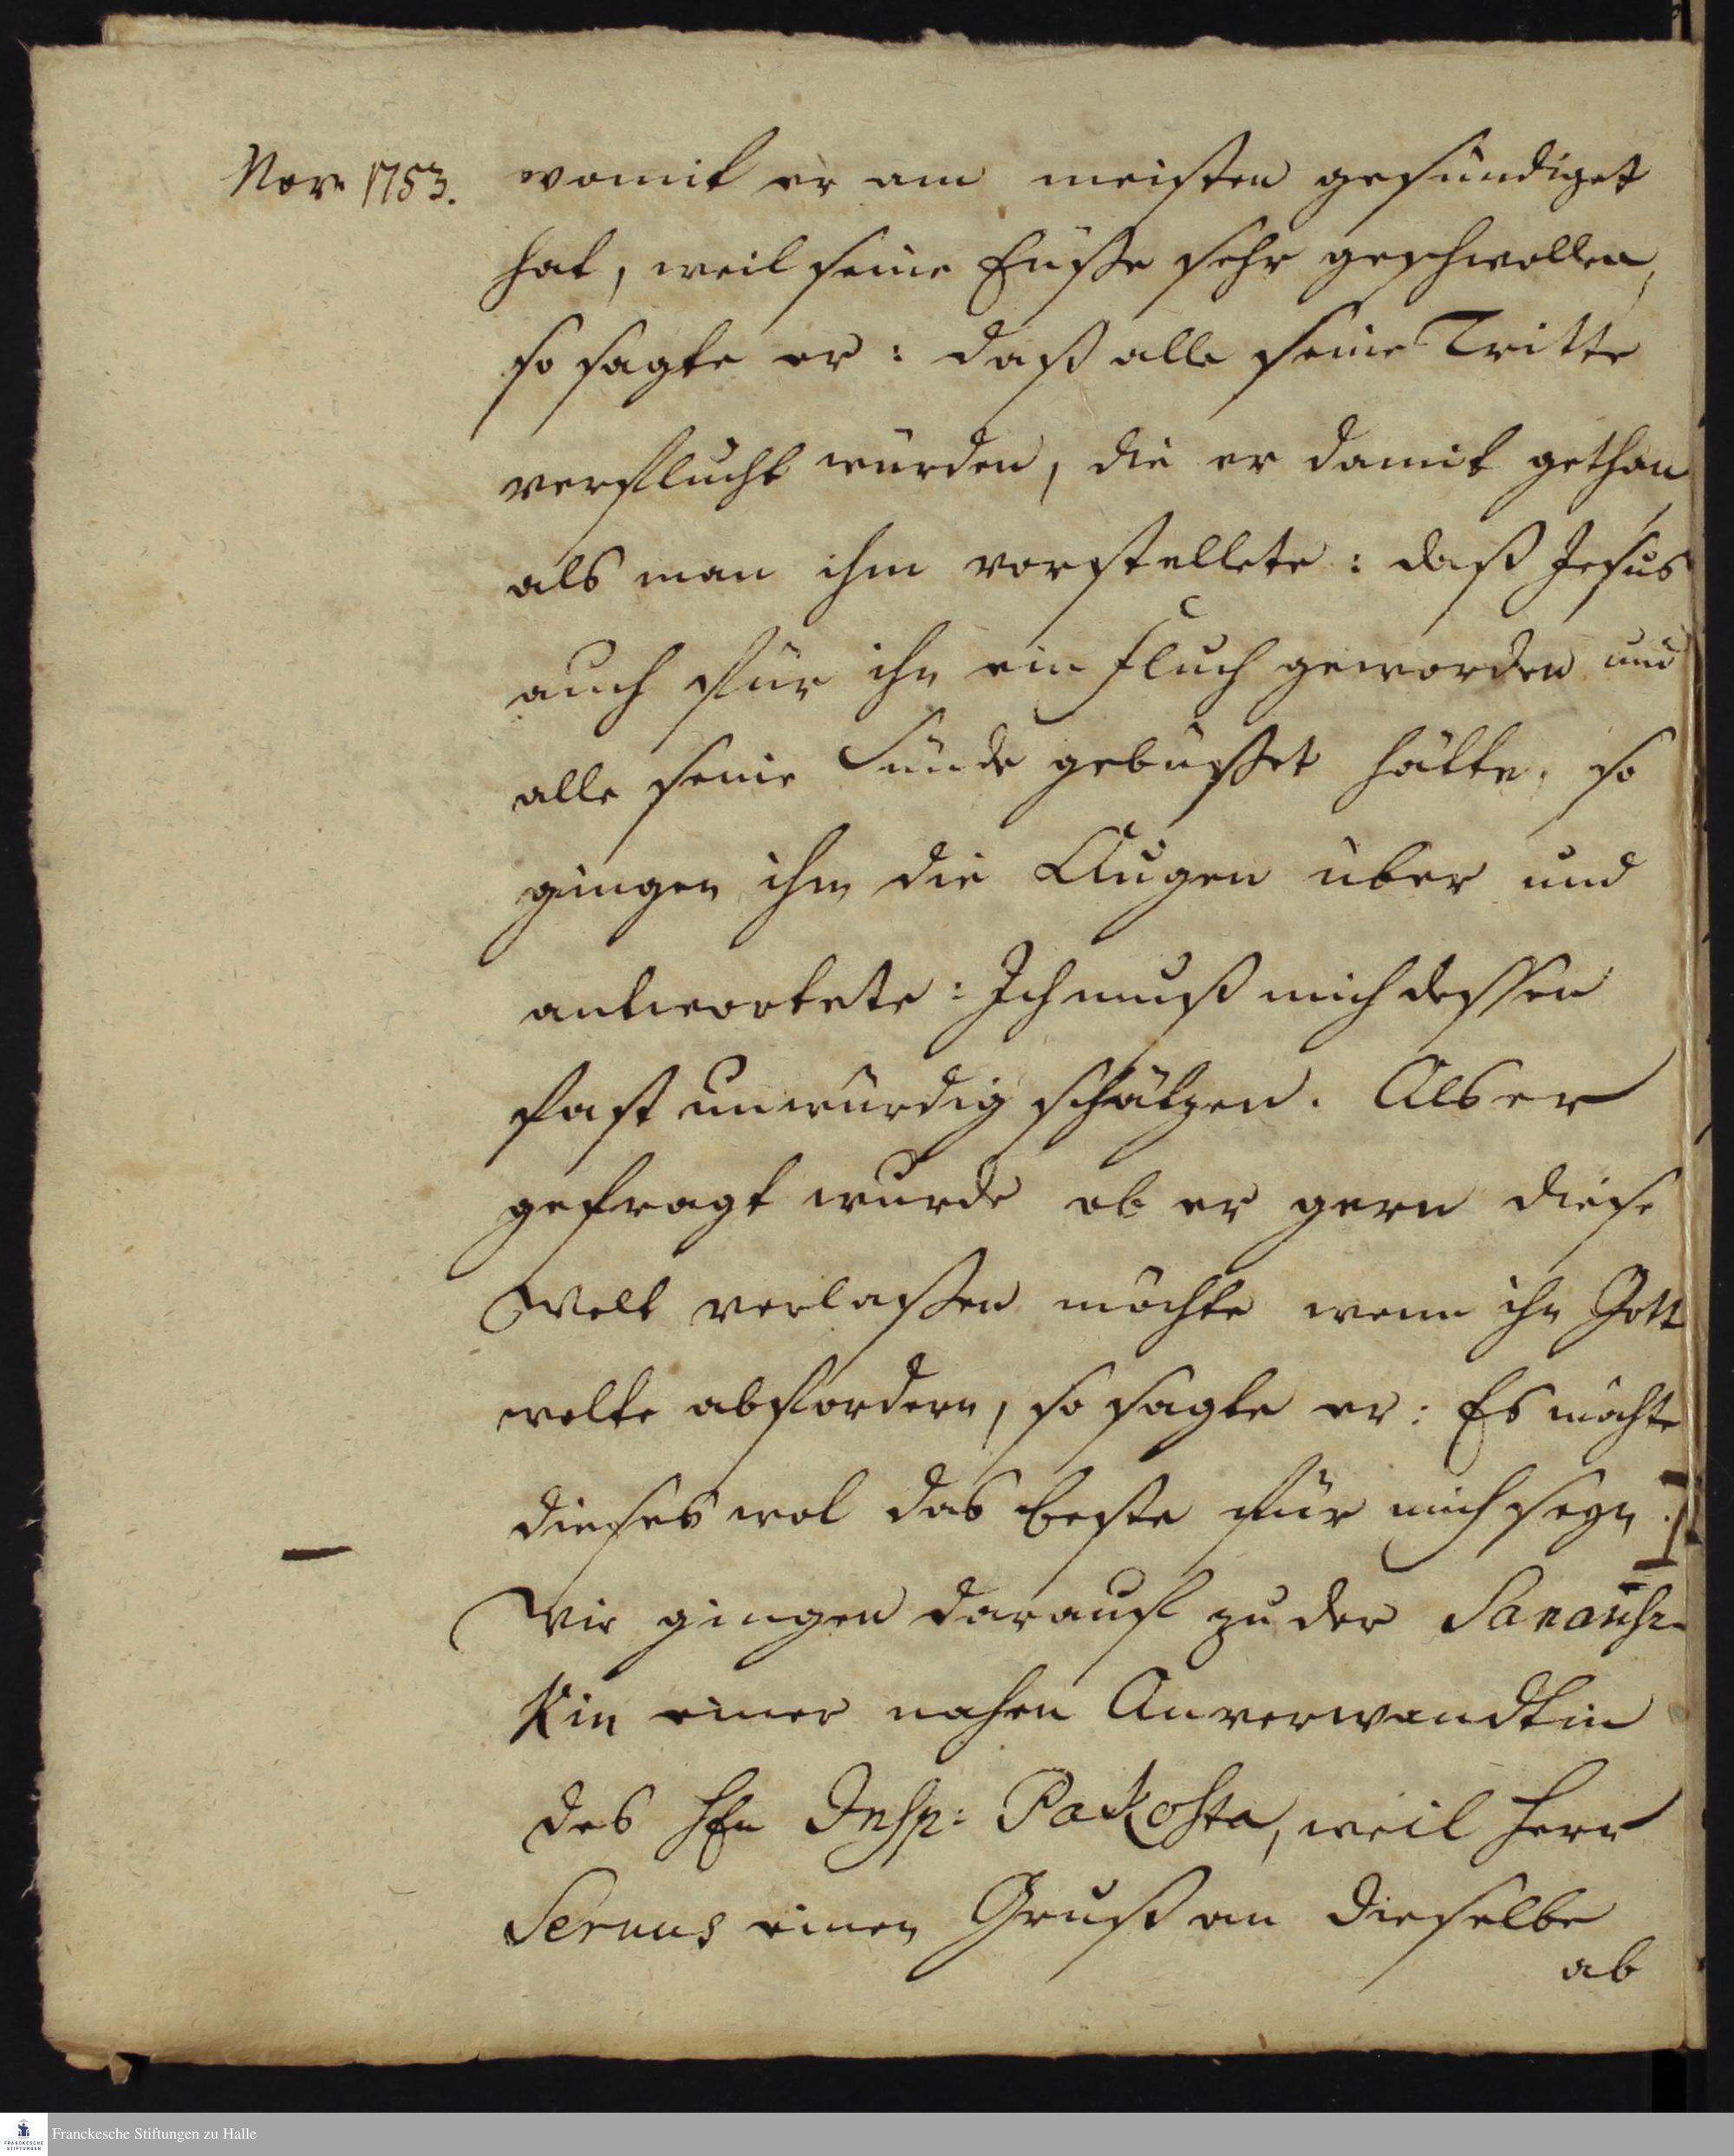 Nov 1753.
womit er am meisten gesündiget
hat, weil seine Füße sehr geschwollen,
so sagte er: daß alle seine Tritte
verflucht würden, die er damit gethan
als man ihm vorstellete: daß Jesus
auch für ihn ein Fluch geworden und
alle seine Sünde gebüßet hätte, so
gingen ihm die Augen über und
antwortete: Ich muß mich dessen
fast unwürdig schätzen. Als er
gefragt wurde ob er gern diese
Welt verlaßen möchte wenn ihn Gott
wolte abfordern, so sagte er: Es möchte
dieses wol das beste für mich seyn.
Wir gingen darauf zu der
kin einer nahen Anverwandtin
des HEn Insp: Pakosta, weil Herr
Servus einen Gruß an dieselbe
ab
Franckesche Stiftungen zu Halle
FRANCKESCHE
STIFTUNGEN